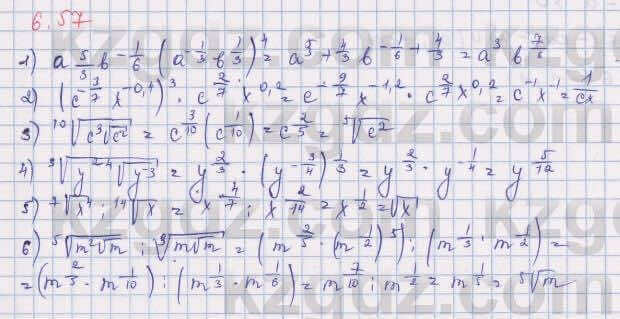 6.57
1) a^{5/3} b^{-1/6} (a^{-1/3} b^{1/3})^4 = a^{5/3+4/3} b^{-1/6+4/3} = a^3 b^{7/6}
2) (c^{-3/7} x^{-0,4})^3 · c^{2/7} x^{0,2} = c^{-9/7} x^{-1,2} · c^{2/7} x^{0,2} = c^{-1} x^{-1} = 1/cx
3) ^{10}√(c^3√c^2) = c^{3/10} (c^{1/10}) = c^{2/5} = ^5√c^2
4) ^3√(y^2 ^4√y^{-3}) = y^{2/3} · (y^{-3/4})^{1/3} = y^{2/3} · y^{-1/4} = y^{5/12}
5) ^7√x^4 : ^{14}√x = x^{4/7} : x^{2/14} = x^{1/2} = √x
6) ^5√(m^2√m) : ^3√(m√m) = (m^{2/5} · (m^{1/2})^5) : (m^{1/3} · m^{1/2}) =
= (m^{2/5} · m^{1/10}) : (m^{1/3} · m^{1/6}) = m^{7/10} : m^{1/2} = m^{1/5} = ^5√m